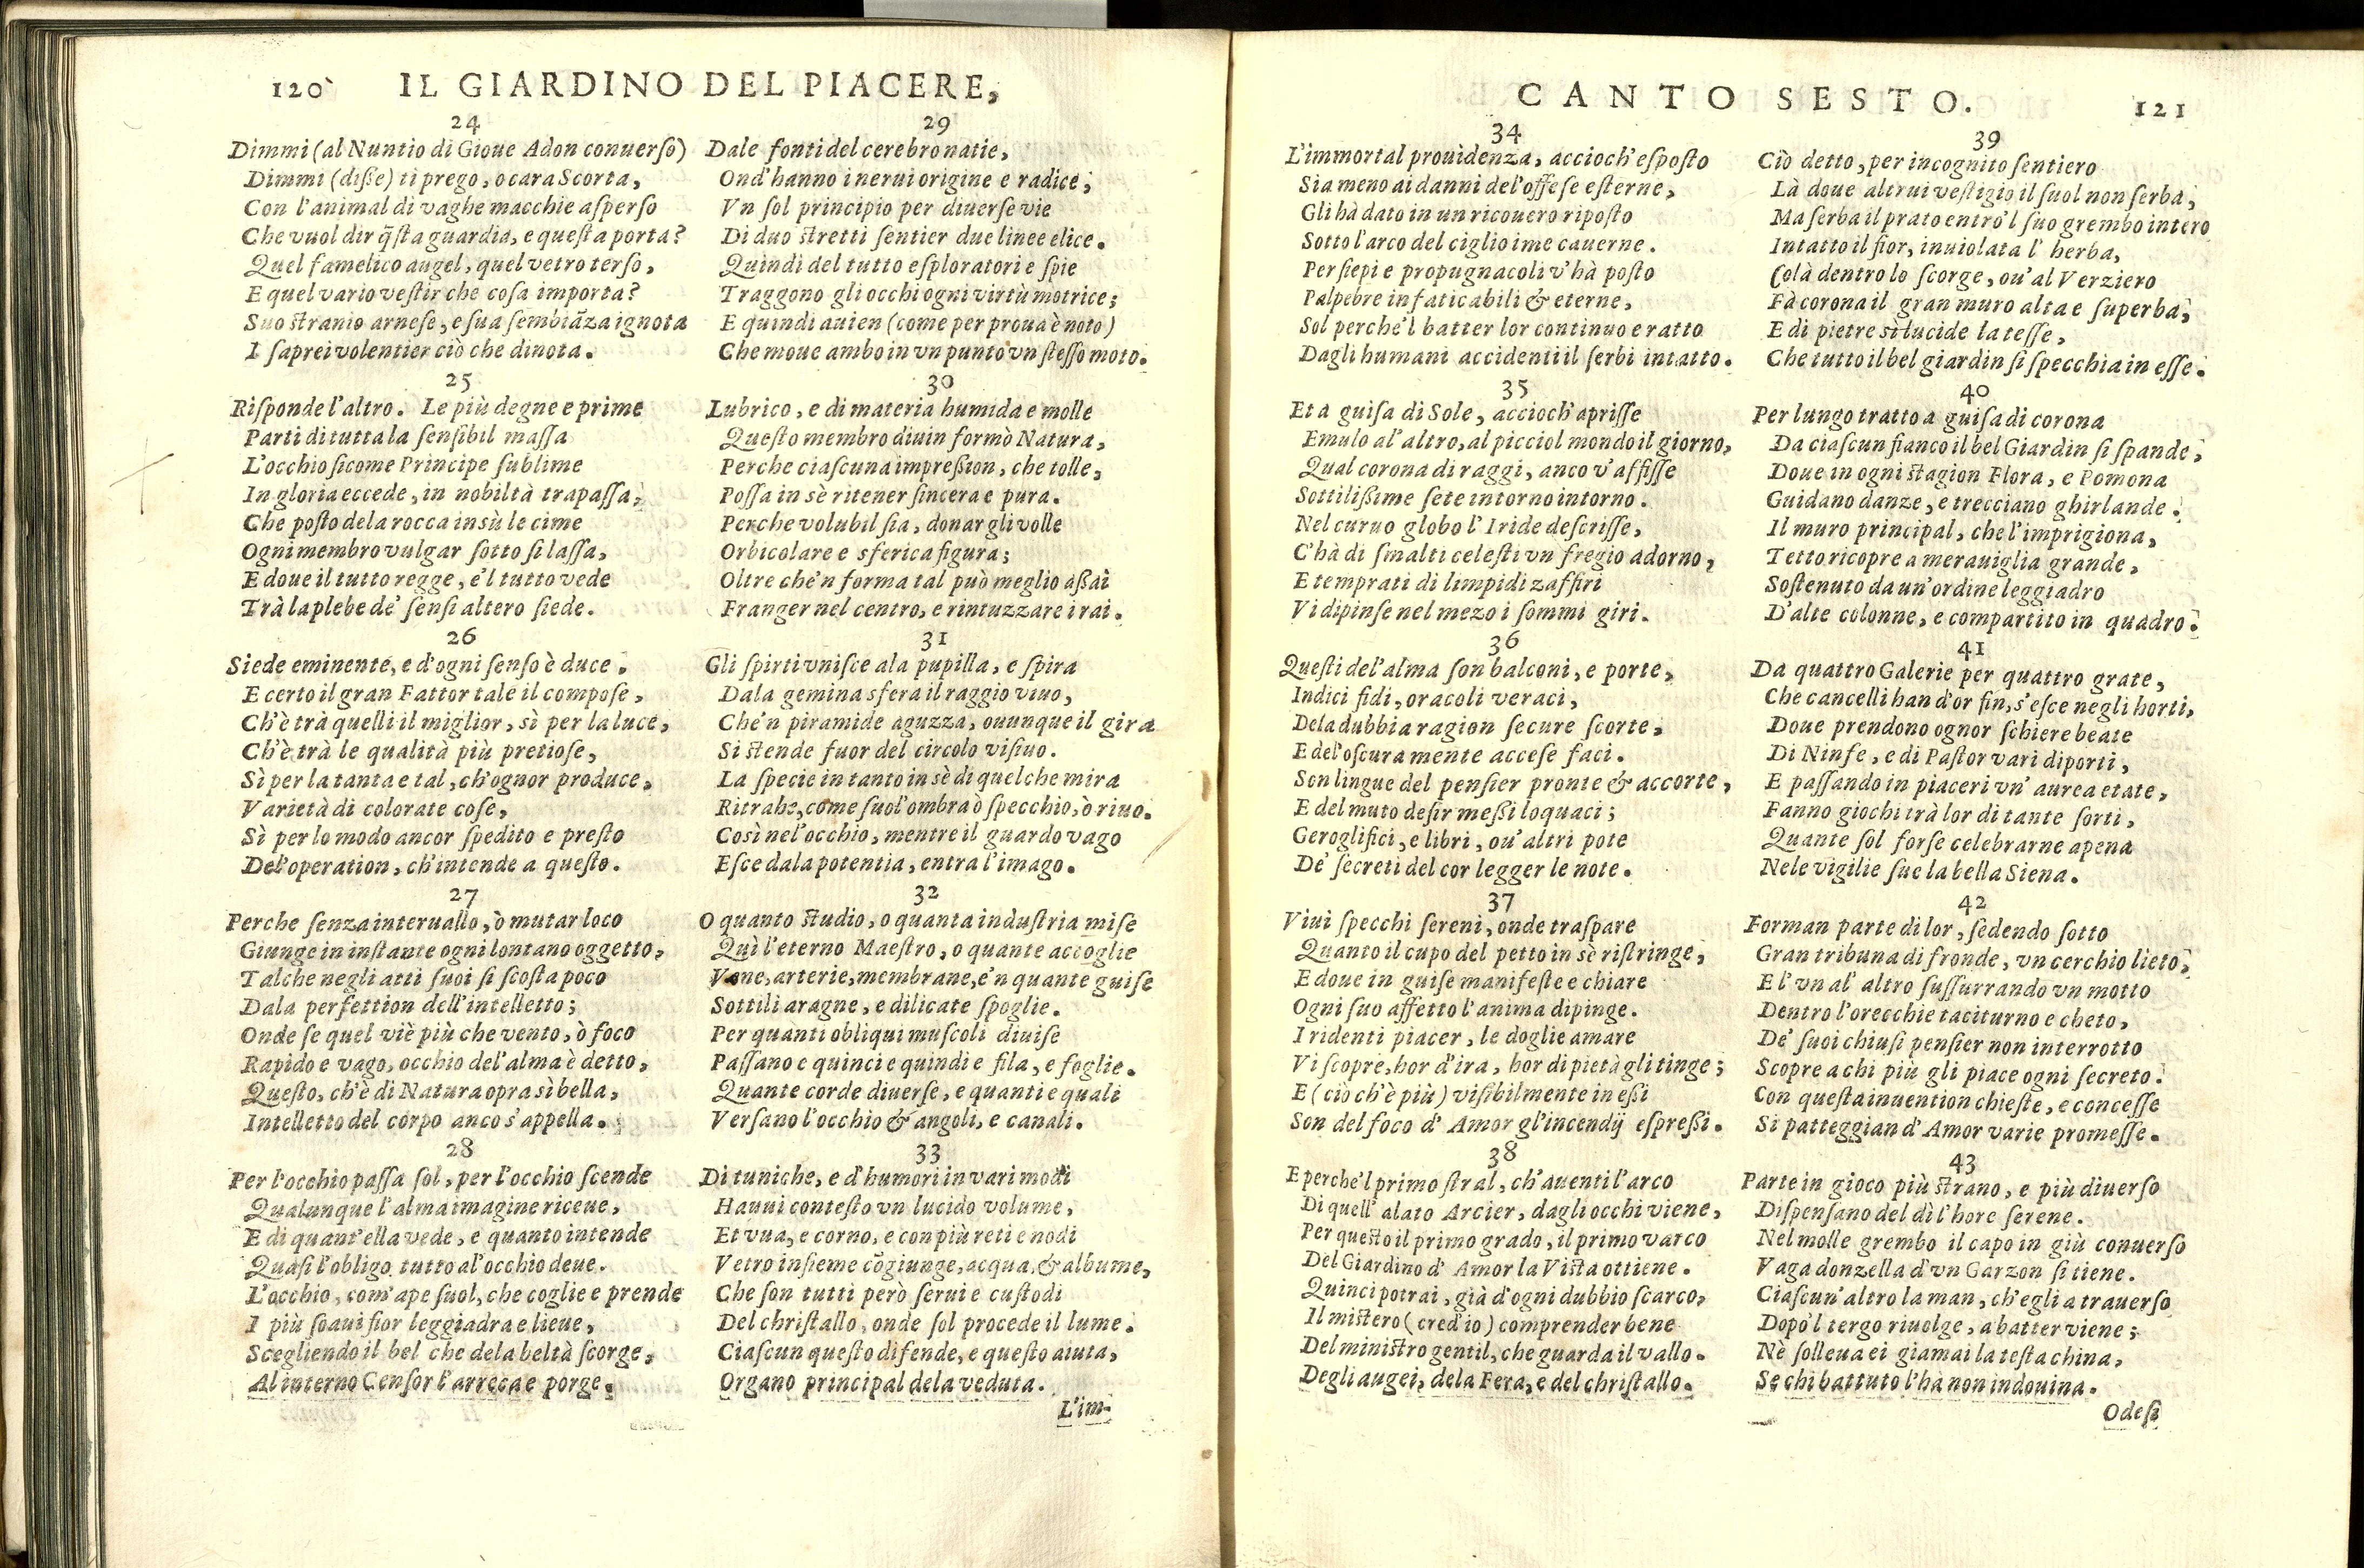 120 IL GIARDINO DEL PIACERE,
24
Dimmi (al Nuntio di Gioue Adon conuerſo)
Dimmi (diße) ti prego, o cara Scorta,
Con l'animal di vaghe macchie aſperſo
Che vuol dir q̃ſta guardia, e queſta porta?
Quel famelico augel, quel vetro terſo,
E quel vario veſtir che coſa importa?
Suo ſtranio arneſe, e ſua ſembiãza ignota
I ſaprei volentier ciò che dinota.
25
Riſponde l'altro. Le più degne e prime
Parti di tutta la ſenſibil maſſa
L'occhio ſicome Principe ſublime
In gloria eccede, in nobiltà trapaſſa;
Che poſto dela rocca insù le cime
Ogni membro vulgar ſotto ſi laſſa,
E doue il tutto regge, e'l tutto vede
Trà la plebe de' ſenſi altero ſiede.
26
Siede eminente, e d'ogni ſenſo è duce.
E certo il gran Fattor tale il compoſe,
Ch'è trà quelli il miglior, sì per la luce,
Ch'è trà le qualità più pretioſe,
Sì per la tanta e tal, ch'ognor produce,
Varietà di colorate coſe,
Sì per lo modo ancor ſpedito e preſto
Del'operation, ch'intende a queſto.
27
Perche ſenza interuallo, ò mutar loco
Giunge in inſtante ogni lontano oggetto,
Talche negli atti ſuoi ſi ſcoſta poco
Dala perfettion dell'intelletto;
Onde ſe quel viè più che vento, ò foco
Rapido e vago, occhio del'alma è detto,
Queſto, ch'è di Natura opra sì bella,
Intelletto del corpo anco s'appella.
28
Per l'occhio paſſa ſol, per l'occhio ſcende
Qualunque l'alma imagine riceue,
E di quant'ella vede, e quanto intende
Quaſi l'obligo tutto al'occhio deue.
L'occhio, com'ape ſuol, che coglie e prende
I più ſoaui fior leggiadra e lieue,
Scegliendo il bel che dela beltà ſcorge,
Al interno Cenſor l'arreca e porge.
29
Dale fonti del cerebro natie,
Ond'hanno i nerui origine e radice,
Vn ſol principio per diuerſe vie
Di duo ſtretti ſentier due linee elice.
Quindi del tutto eſploratori e ſpie
Traggono gli occhi ogni virtù motrice;
E quindi auien (come per proua è noto)
Che moue ambo in vn punto vn ſteſſo moto.
30
Lubrico, e di materia humida e molle
Queſto membro diuin formò Natura,
Perche ciaſcuna impreßion, che tolle,
Poſſa in sè ritener ſincera e pura.
Perche volubil ſia, donar gli volle
Orbicolare e sferica figura;
Oltre che'n forma tal può meglio aßai
Franger nel centro, e rintuzzare i rai.
31
Gli ſpirti vniſce ala pupilla, e ſpira
Dala gemina sfera il raggio viuo,
Che'n piramide aguzza, ouunque il gira
Si ſtende fuor del circolo viſiuo.
La ſpecie intanto in sè di quel che mira
Ritrahe, come ſuol'ombra ò ſpecchio, ò riuo.
Così nel'occhio, mentre il guardo vago
Eſce dala potentia, entra l'imago.
32
O quanto ſtudio, o quanta induſtria miſe
Quì l'eterno Maeſtro, o quante accoglie
Vene, arterie, membrane, e'n quante guiſe
Sottili aragne, e dilicate ſpoglie.
Per quanti obliqui muſcoli diuiſe
Paſſano e quinci e quindi e fila, e foglie.
Quante corde diuerſe, e quanti e quali
Verſano l'occhio & angoli, e canali.
33
Di tuniche, e d'humori in vari modi
Hauui conteſto vn lucido volume,
Et vua, e corno, e con più reti e nodi
Vetro inſieme cõgiunge, acqua, & albume,
Che ſon tutti però ſerui e cuſtodi
Del chriſtallo, onde ſol procede il lume.
Ciaſcun queſto difende, e queſto aiuta,
Organo principal dela veduta.
L'im-
CANTO SESTO. 121
34
L'immortal prouidenza, accioch'eſpoſto
Sia meno ai danni del'offeſe eſterne,
Gli hà dato in un ricouero ripoſto
Sotto l'arco del ciglio ime cauerne.
Per ſiepi e propugnacoli v'hà poſto
Palpebre infaticabili & eterne,
Sol perche'l batter lor continuo e ratto
Dagli humani accidenti il ſerbi intatto.
35
Et a guiſa di Sole, accioch'apriſſe
Emulo al'altro, al picciol mondo il giorno,
Qual corona di raggi, anco v'affiſſe
Sottilißime ſete intorno intorno.
Nel curuo globo l'Iride deſcriſſe,
C'hà di ſmalti celeſti vn fregio adorno,
E temprati di limpidi zaffiri
Vi dipinſe nel mezo i ſommi giri.
36
Queſti del'alma ſon balconi, e porte,
Indici fidi, oracoli veraci,
Dela dubbia ragion ſecure ſcorte,
E del'oſcura mente acceſe faci.
Son lingue del penſier pronte & accorte,
E del muto deſir meßi loquaci;
Geroglifici, e libri, ou'altri pote
De' ſecreti del cor legger le note.
37
Viui ſpecchi ſereni, onde traſpare
Quanto il cupo del petto in sè riſtringe;
E doue in guiſe manifeſte e chiare
Ogni ſuo affetto l'anima dipinge.
I ridenti piacer, le doglie amare
Vi ſcopre, hor d'ira, hor di pietà gli tinge;
E (ciò ch'è più) viſibilmente in eßi
Son del foco d'Amor gl'incendij eſpreßi.
38
E perche'l primo ſtral, ch'auenti l'arco
Di quell'alato Arcier, dagli occhi viene,
Per queſto il primo grado, il primo varco
Del Giardino d'Amor la Viſta ottiene.
Quinci potrai, già d'ogni dubbio ſcarco,
Il miſtero (cred'io) comprender bene
Del miniſtro gentil, che guarda il vallo.
Degli augei, dela Fera, e del chriſtallo.
39
Ciò detto, per incognito ſentiero
Là doue altrui veſtigio il ſuol non ſerba,
Ma ſerba il prato entro'l ſuo grembo intero
Intatto il fior, inuiolata l'herba,
Colà dentro lo ſcorge, ou'al Verziero
Fà corona il gran muro alta e ſuperba,
E di pietre sì lucide la teſſe,
Che tutto il bel giardin ſi ſpecchia in eſſe.
40
Per lungo tratto a guiſa di corona
Da ciaſcun fianco il bel Giardin ſi ſpande,
Doue in ogni ſtagion Flora, e Pomona
Guidano danze, e trecciano ghirlande.
Il muro principal, che l'imprigiona,
Tetto ricopre a merauiglia grande,
Soſtenuto da un'ordine leggiadro
D'alte colonne, e compartito in quadro.
41
Da quattro Galerie per quattro grate,
Che cancelli han d'or fin, s'eſce negli horti,
Doue prendono ognor ſchiere beate
Di Ninfe, e di Paſtor vari diporti,
E paſſando in piaceri vn'aurea etate,
Fanno giochi trà lor di tante ſorti,
Quante ſol forſe celebrarne apena
Nele vigilie ſue la bella Siena.
42
Forman parte di lor, ſedendo ſotto
Gran tribuna di fronde, vn cerchio lieto,
E l'vn al'altro ſuſſurrando vn motto
Dentro l'orecchie taciturno e cheto,
De' ſuoi chiuſi penſier non interrotto
Scopre a chi più gli piace ogni ſecreto.
Con queſta inuention chieſte, e conceſſe
Si patteggian d'Amor varie promeſſe.
43
Parte in gioco più ſtrano, e più diuerſo
Diſpenſano del dì l'hore ſerene.
Nel molle grembo il capo in giù conuerſo
Vaga donzella d'vn Garzon ſi tiene.
Ciaſcun'altro la man, ch'egli a trauerſo
Dopò'l tergo riuolge, a batter viene;
Nè ſolleua ei giamai la teſta china,
Se chi battuto l'hà non indouina.
Odeſi